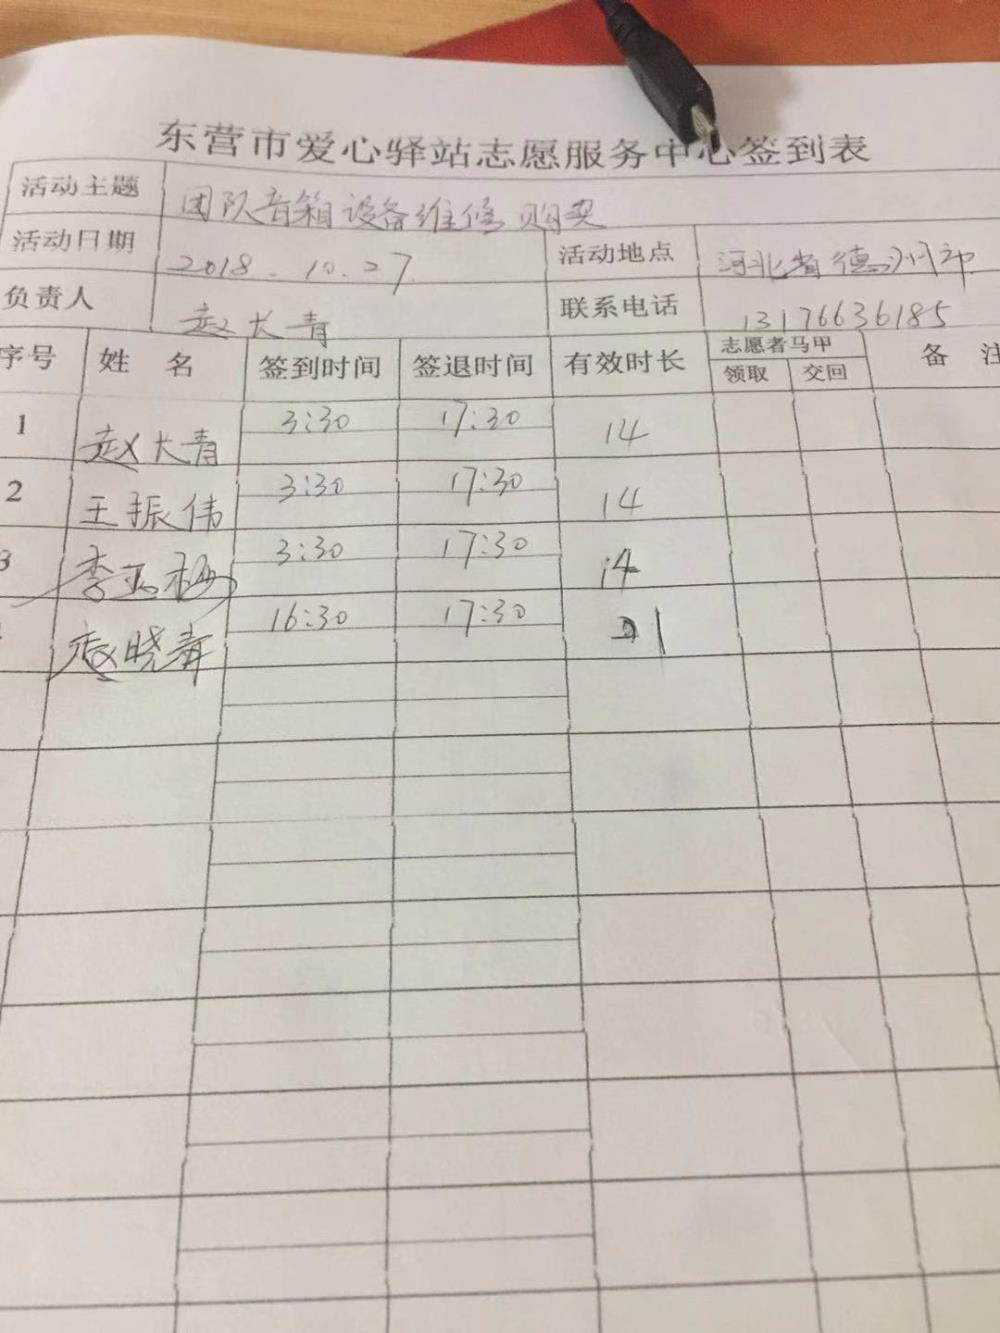 东营市爱心驿站志愿服务中心签到表
活动主题 团队音箱设备维修购买
活动日期 2018.10.27 活动地点 河北省德州市
负责人 赵大青 联系电话 13176636185
序号 姓名 签到时间 签退时间 有效时长 志愿者马甲 备 注
领取 交回
1 赵大青 3:30 17:30 14
2 王振伟 3:30 17:30 14
3 李 3:30 17:30 14
赵晓青 16:30 17:30 1